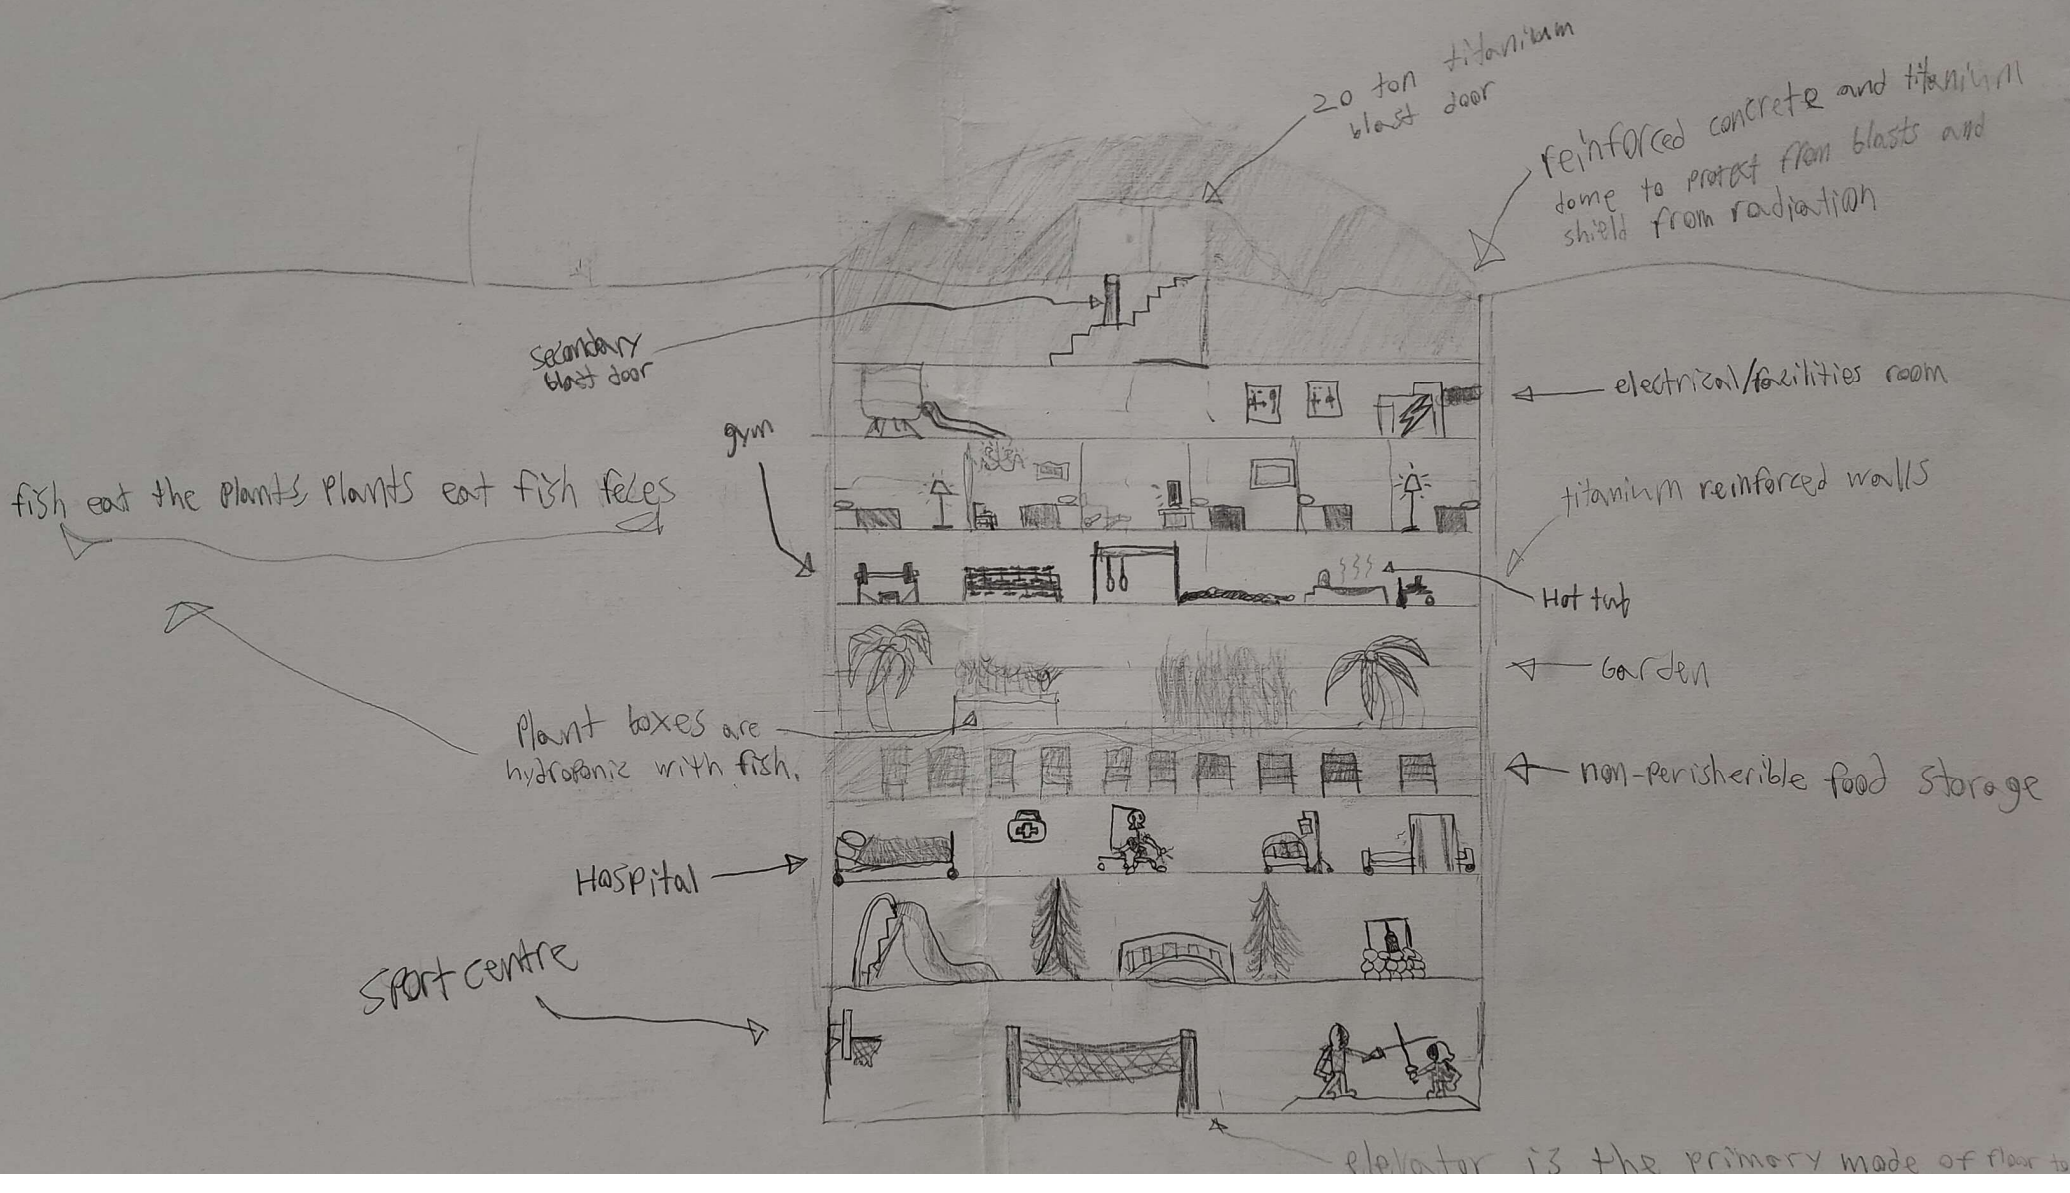 20 ton titanium
blast door
reinforced concrete and titanium
dome to protect from blasts and
shield from radiation
secondary
blast door
electrical/facilities room
gym
fish eat the plants, plants eat fish feces
titanium reinforced walls
Hot tub
Garden
Plant boxes are
hydroponic with fish.
non-perisherible food storage
Hospital
Sport centre
elevator is the primary mode of floor to